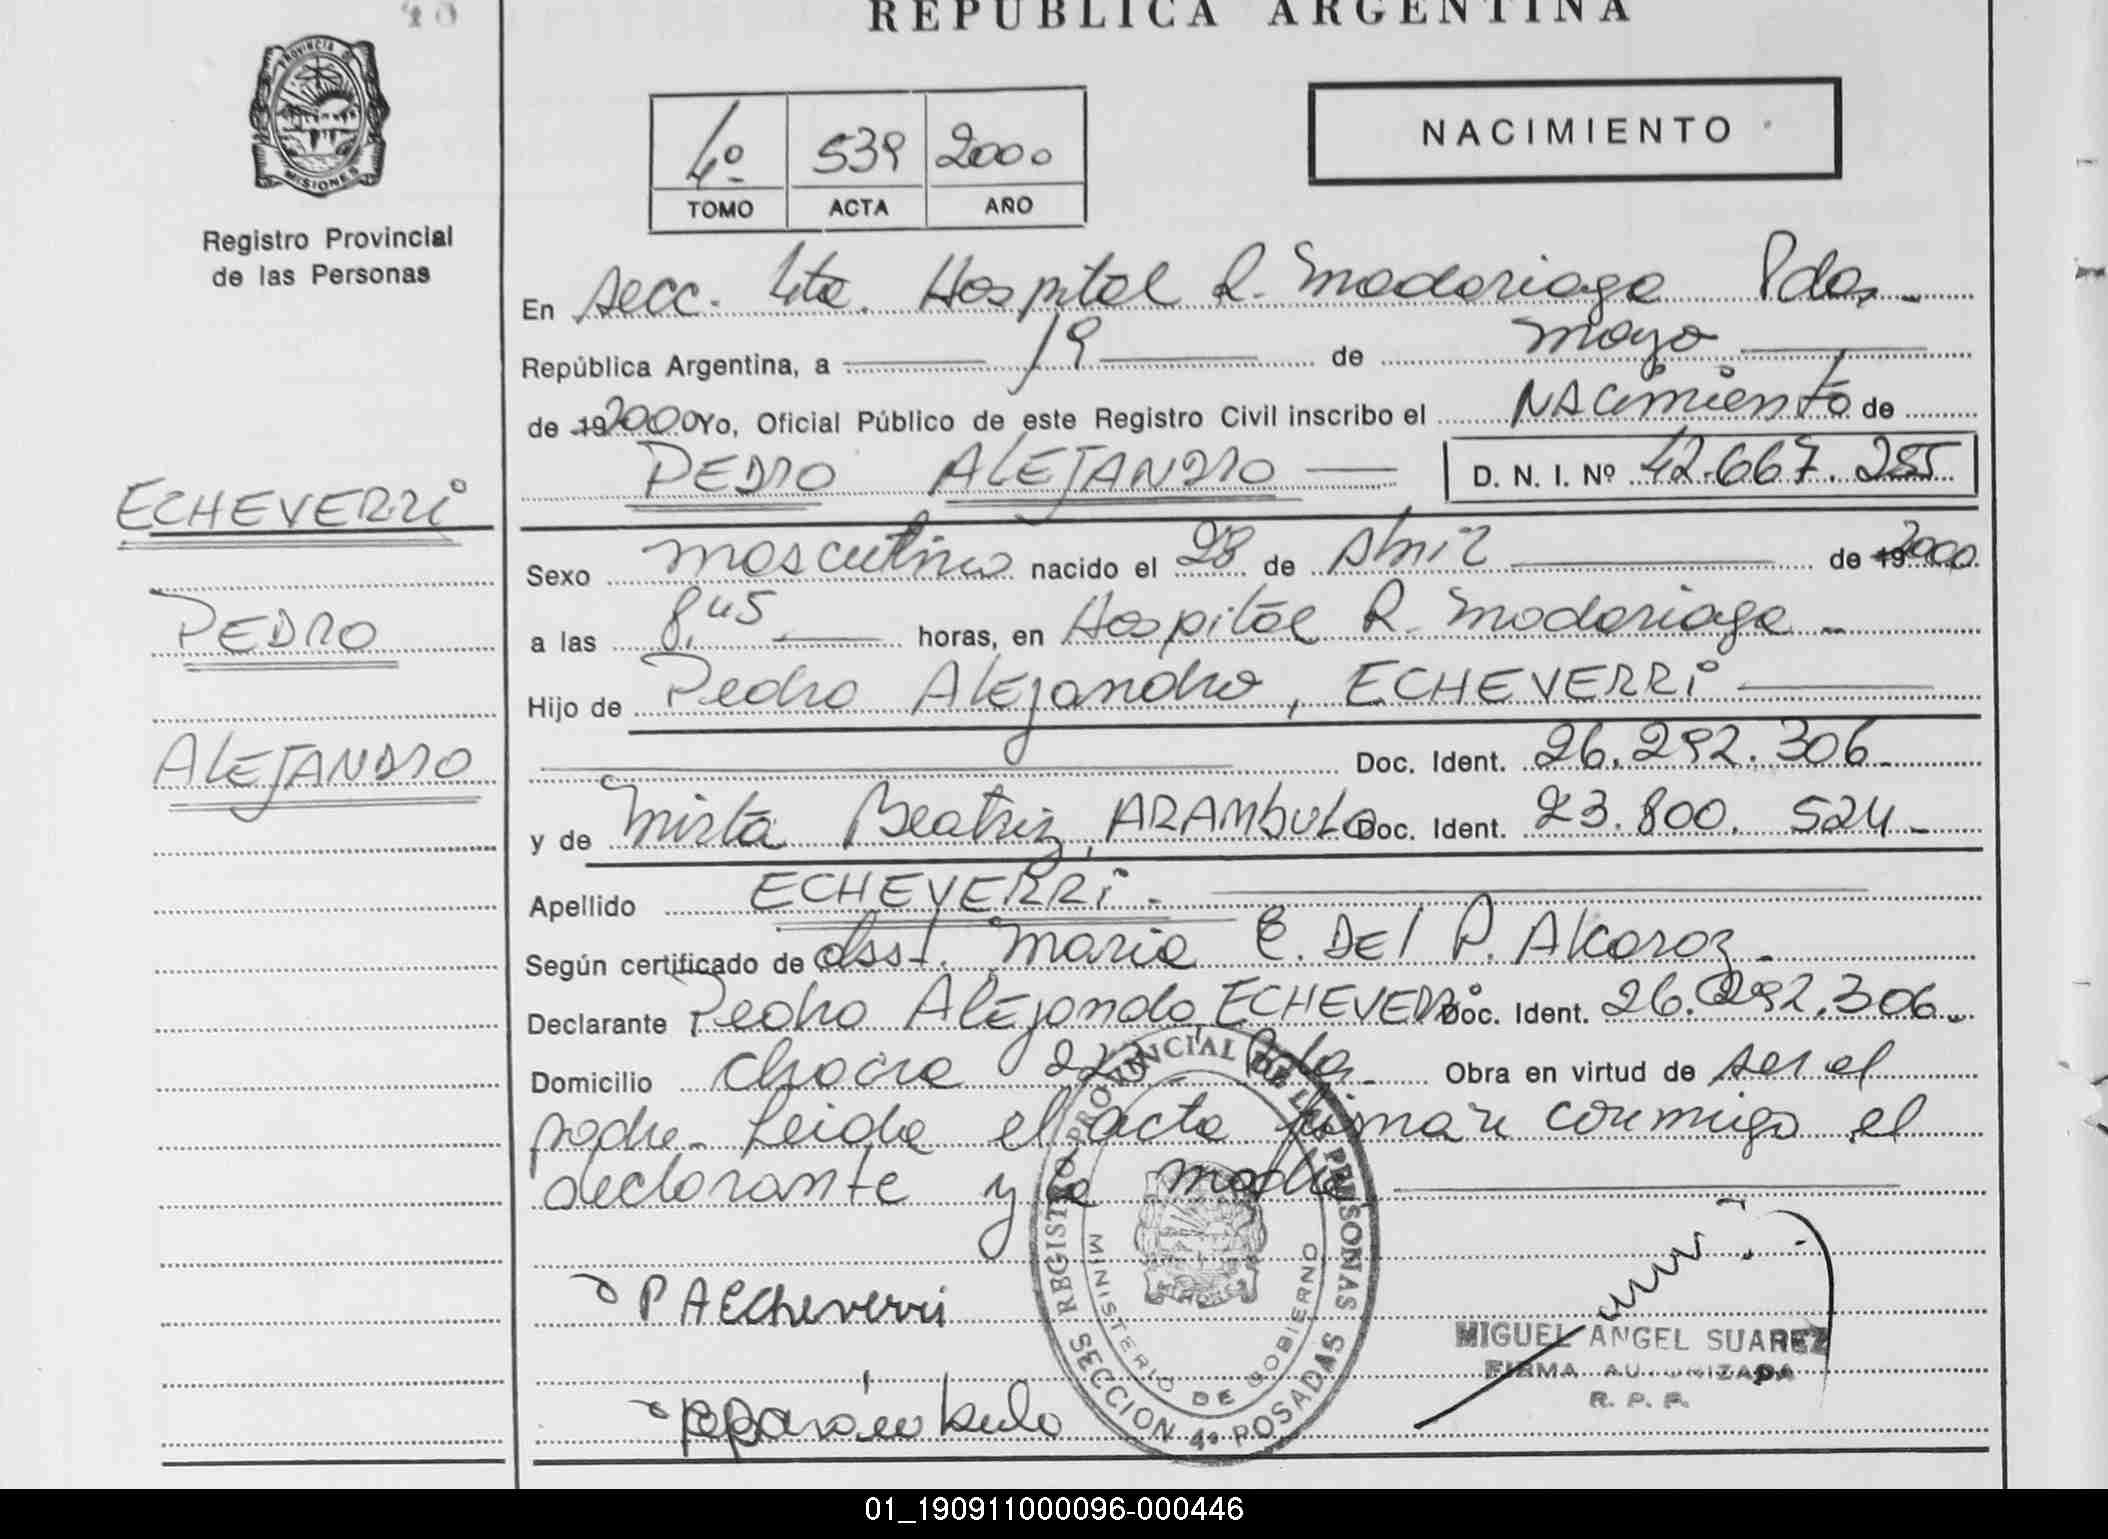 REPUBLICA ARGENTINA
PROVINCIA DE MISIONES
Registro Provincial
de las Personas
4º 539 2000
TOMO ACTA AÑO
NACIMIENTO
En Secc. 4ta. Hospital R. Madariaga Pdas.-
República Argentina, a 19 de Mayo
de 19 2000 Yo, Oficial Público de este Registro Civil inscribo el NACimiento de
PEDRO ALEJANDRO D. N. I. Nº 42.667.255
ECHEVERRI
PEDRO
ALEJANDRO
Sexo masculino nacido el 28 de Abril de 19 2000
a las 8,45 horas, en Hospital R. Madariaga -
Hijo de Pedro Alejandro, ECHEVERRI
Doc. Ident. 26.292.306-
y de Mirta Beatriz, ARAMBULO Doc. Ident. 23.800.524-
Apellido ECHEVERRI.-
Según certificado de Obst. Maria E. DEl P. Alcaraz-
Declarante Pedro Alejandro ECHEVERRI Doc. Ident. 26.292.306-
Domicilio Chacra Pdas.- Obra en virtud de ser el
padre- Leida el acta firman conmigo el
declarante y la madre
P A Echeverri
MIGUEL ANGEL SUAREZ
FIRMA AUTORIZADA
R. P. P.
REGISTRO PROVINCIAL DE LAS PERSONAS
MINISTERIO DE GOBIERNO
SECCION 4ª POSADAS
01_190911000096-000446